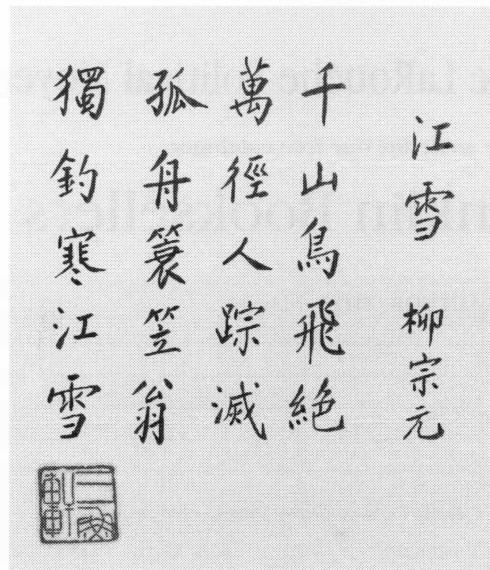 江雪 柳宗元
千山鳥飛絕
萬徑人踪滅
孤舟簑笠翁
獨釣寒江雪